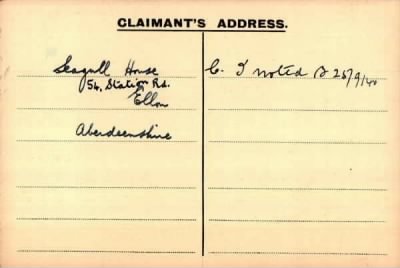 CLAIMANT'S ADDRESS.
Seagull House
54, Station Rd.
Ellon
Aberdeenshire
C. I noted B 25/9/40